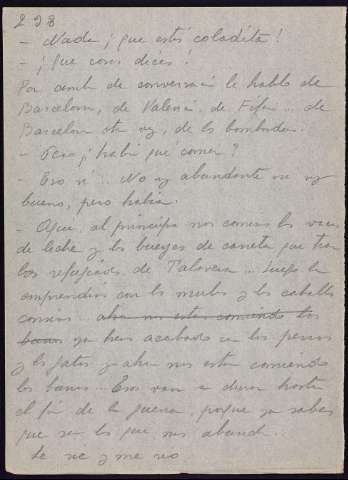 298
- Nada ¡que estás coladita!
- ¡Que cosas dices!
Por cambiar de conversación le hablo de
Barcelona, de Valencia, de ... de
Barcelona otra vez, de los bombardeos.
- Pero ¿había qué comer?
- Eso sí... No muy abundante ni muy
bueno, pero había.
- Aquí, al principio nos comimos las vacas
de leche y los bueyes de carreta que
los refugiados de Talavera... Luego la
emprendimos con los mulos y los caballos
ahora nos están comiendo los
ya han acabado con los perros
y los gatos y ahora nos están comiendo
los ... Esos van a durar hasta
el fin de la guerra, porque ya sabes
que son los que más abundan...
Se ríe y me río.